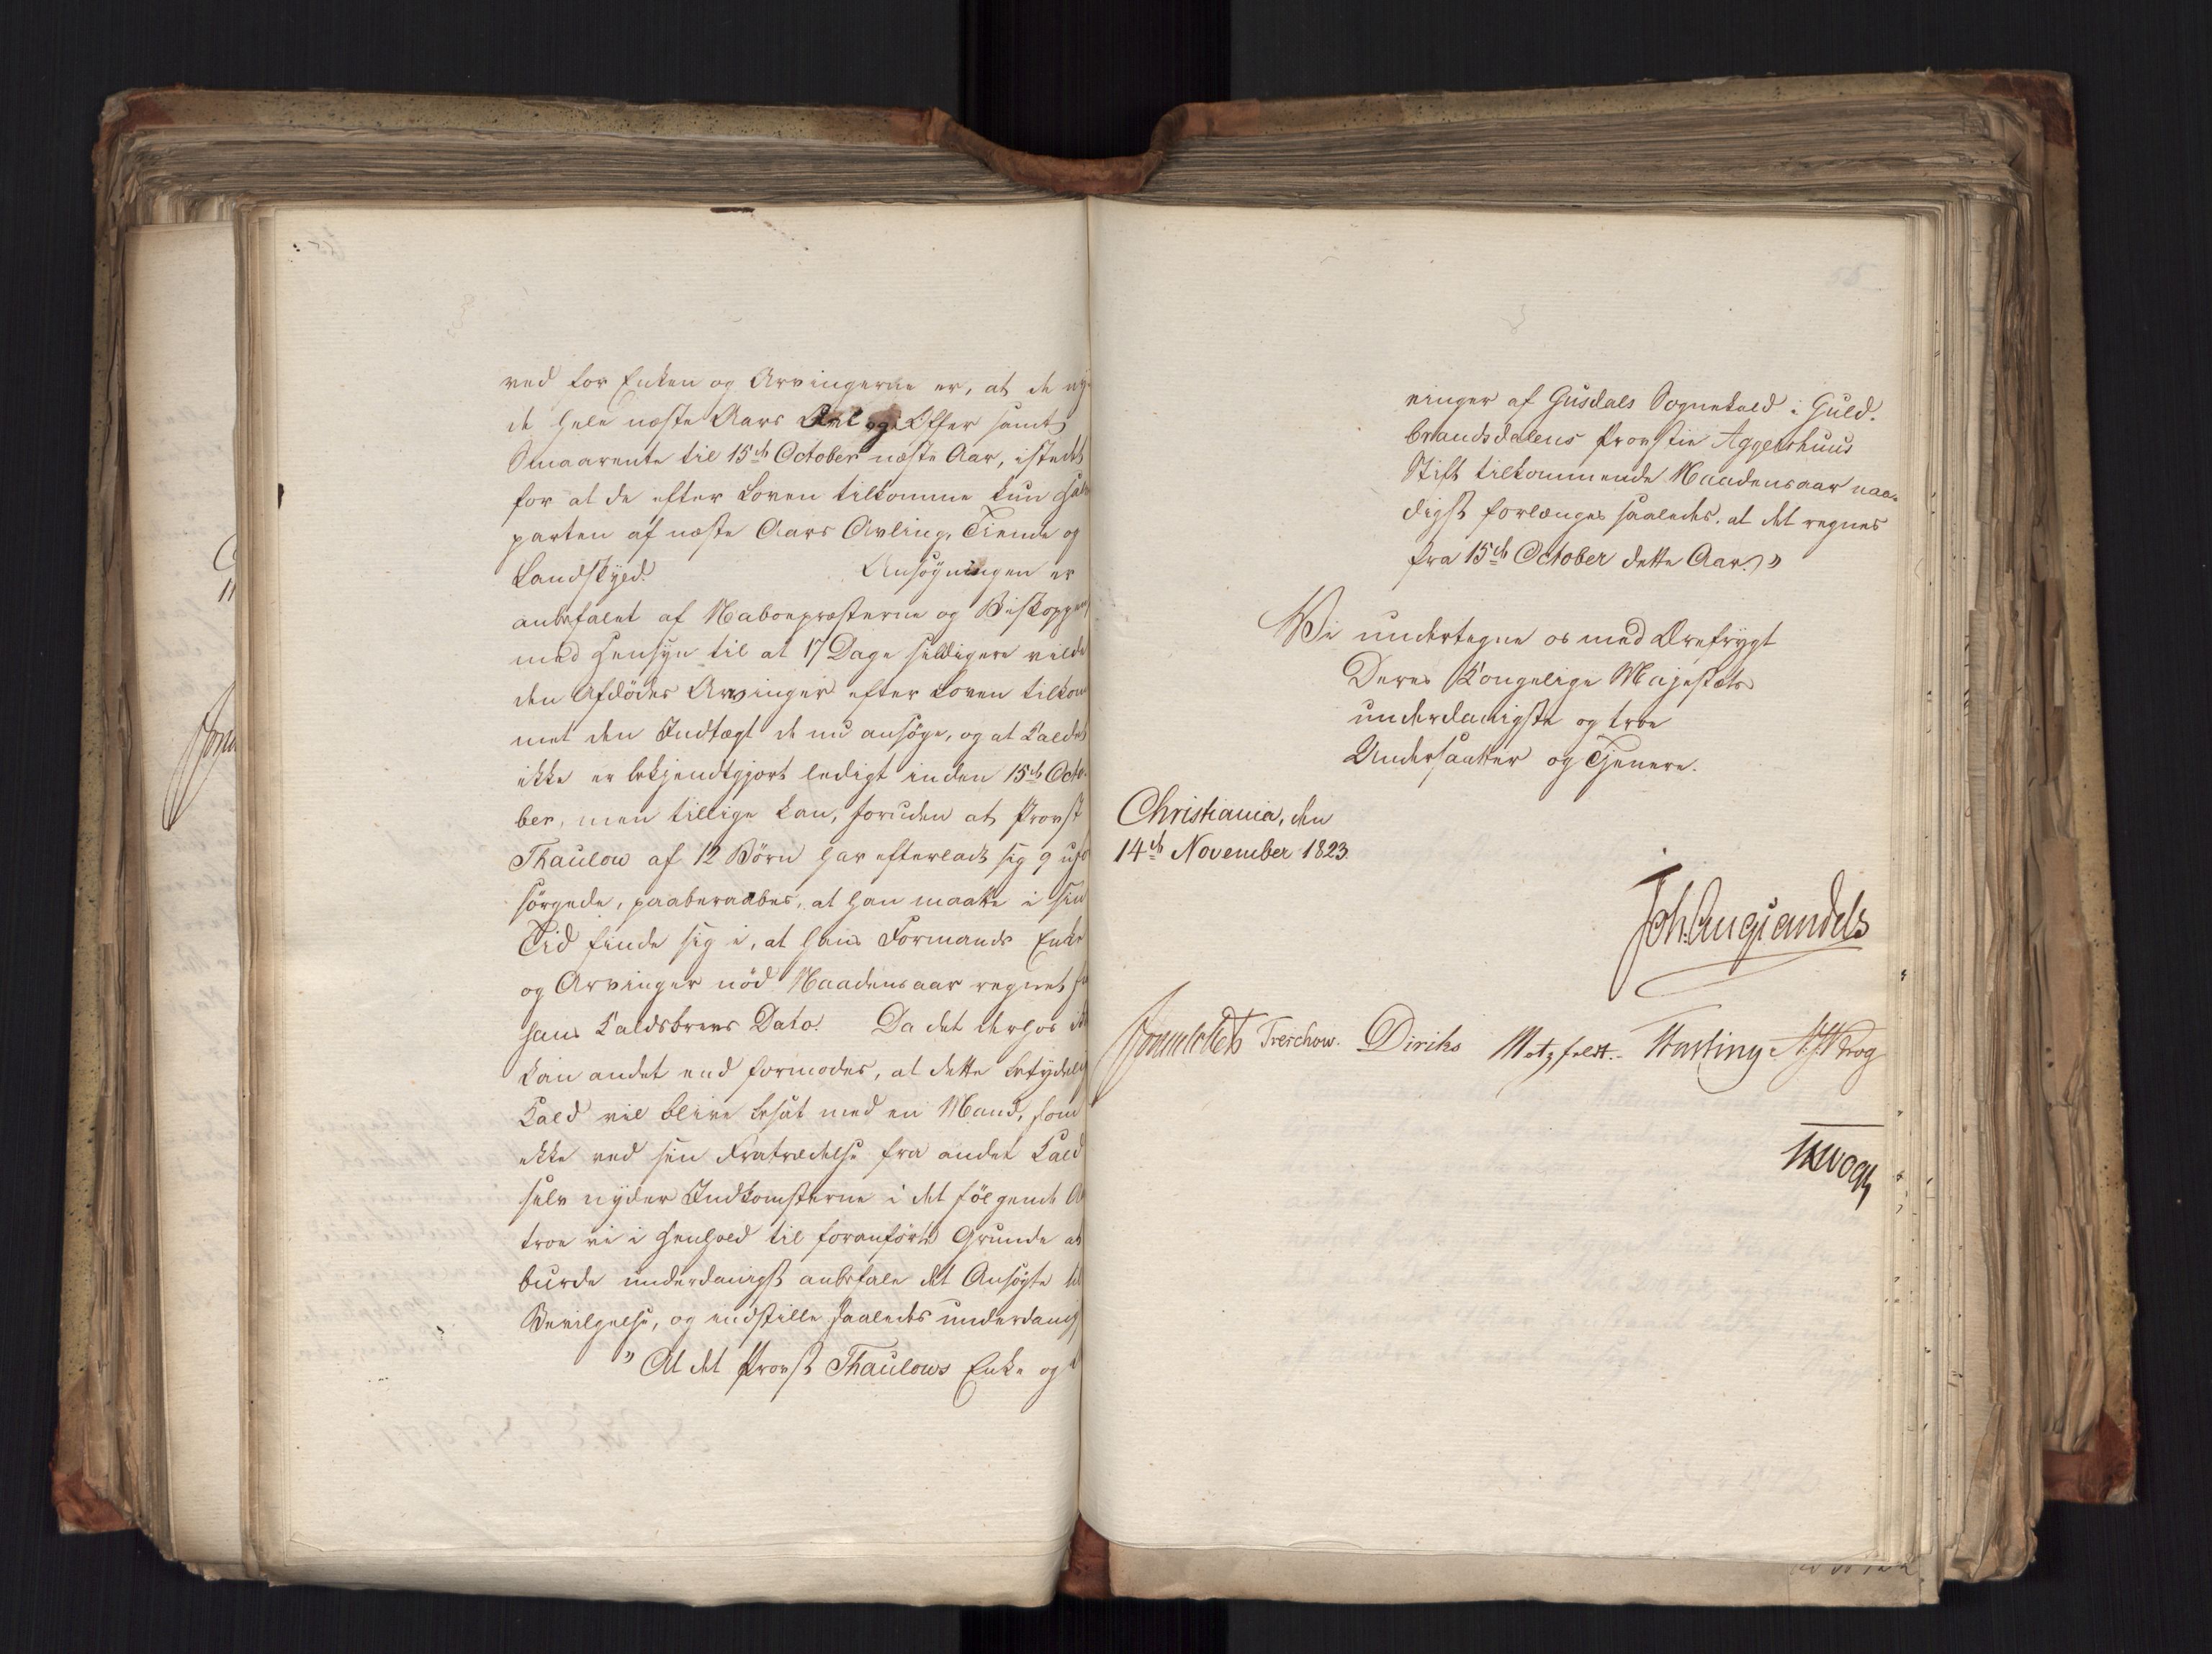 ved for Enken og Arvingerne er, at de ny
de hele næste Aars Avl og Offer samt
Smaarente til 15de October næste Aar, istedet
for at de efter Loven tilkomme kun Halv
parten af næste Aars Avling, Tiende og
Landskyld. Ansøgningen er
anbefalet af Naboepræsterne og Biskoppen
med Hensyn til at 17 Dage sildigere vilde
den Afdødes Arvinger efter Loven tilkom
met den Indtægt de nu ansøge, og at Kaldet
ikke er bekjendtgjort ledigt inden 15de Octo-
ber, men tillige kan, foruden at Provst
Thaulow af 12 Børn har efterladt sig 9 ufor
sørgede, paaberaabes, at han maatte i sin
Tid finde sig i, at hans Formands Enke
og Arvinger nød Naadensaar regnet fra
hans Kaldsbrevs Dato. Da det derhos ikke
kan andet end formodes, at dette betydelige
Kald vil blive besat med en Mand, som
ikke ved sin Fratrædelse fra andet Kald
selv nyder Indkomsterne i det følgende Aar
troe vi i Henhold til foranførte Grunde at
burde underdanigst anbefale det Ansøgte til
Bevilgelse, og indstille saaledes underdanigst
"At det Provst Thaulows Enke og
vinger af Gusdals Sognekald i Guld-
brandsdalens Provstie Aggershuus
Stift tilkommende Naadensaar naa-
digst forlænges saaledes, at det regnes
fra 15de October dette Aar."
Vi undertegne os med Ærefrygt
Deres Kongelige Majestæts
underdanigste og troe
Undersaatter og Tjenere.
Christiania, den
14de November 1823.
Joh. Aug Sandels
Sommerfeldt Treschow. Diriks Motzfeldt. Fasting Krog